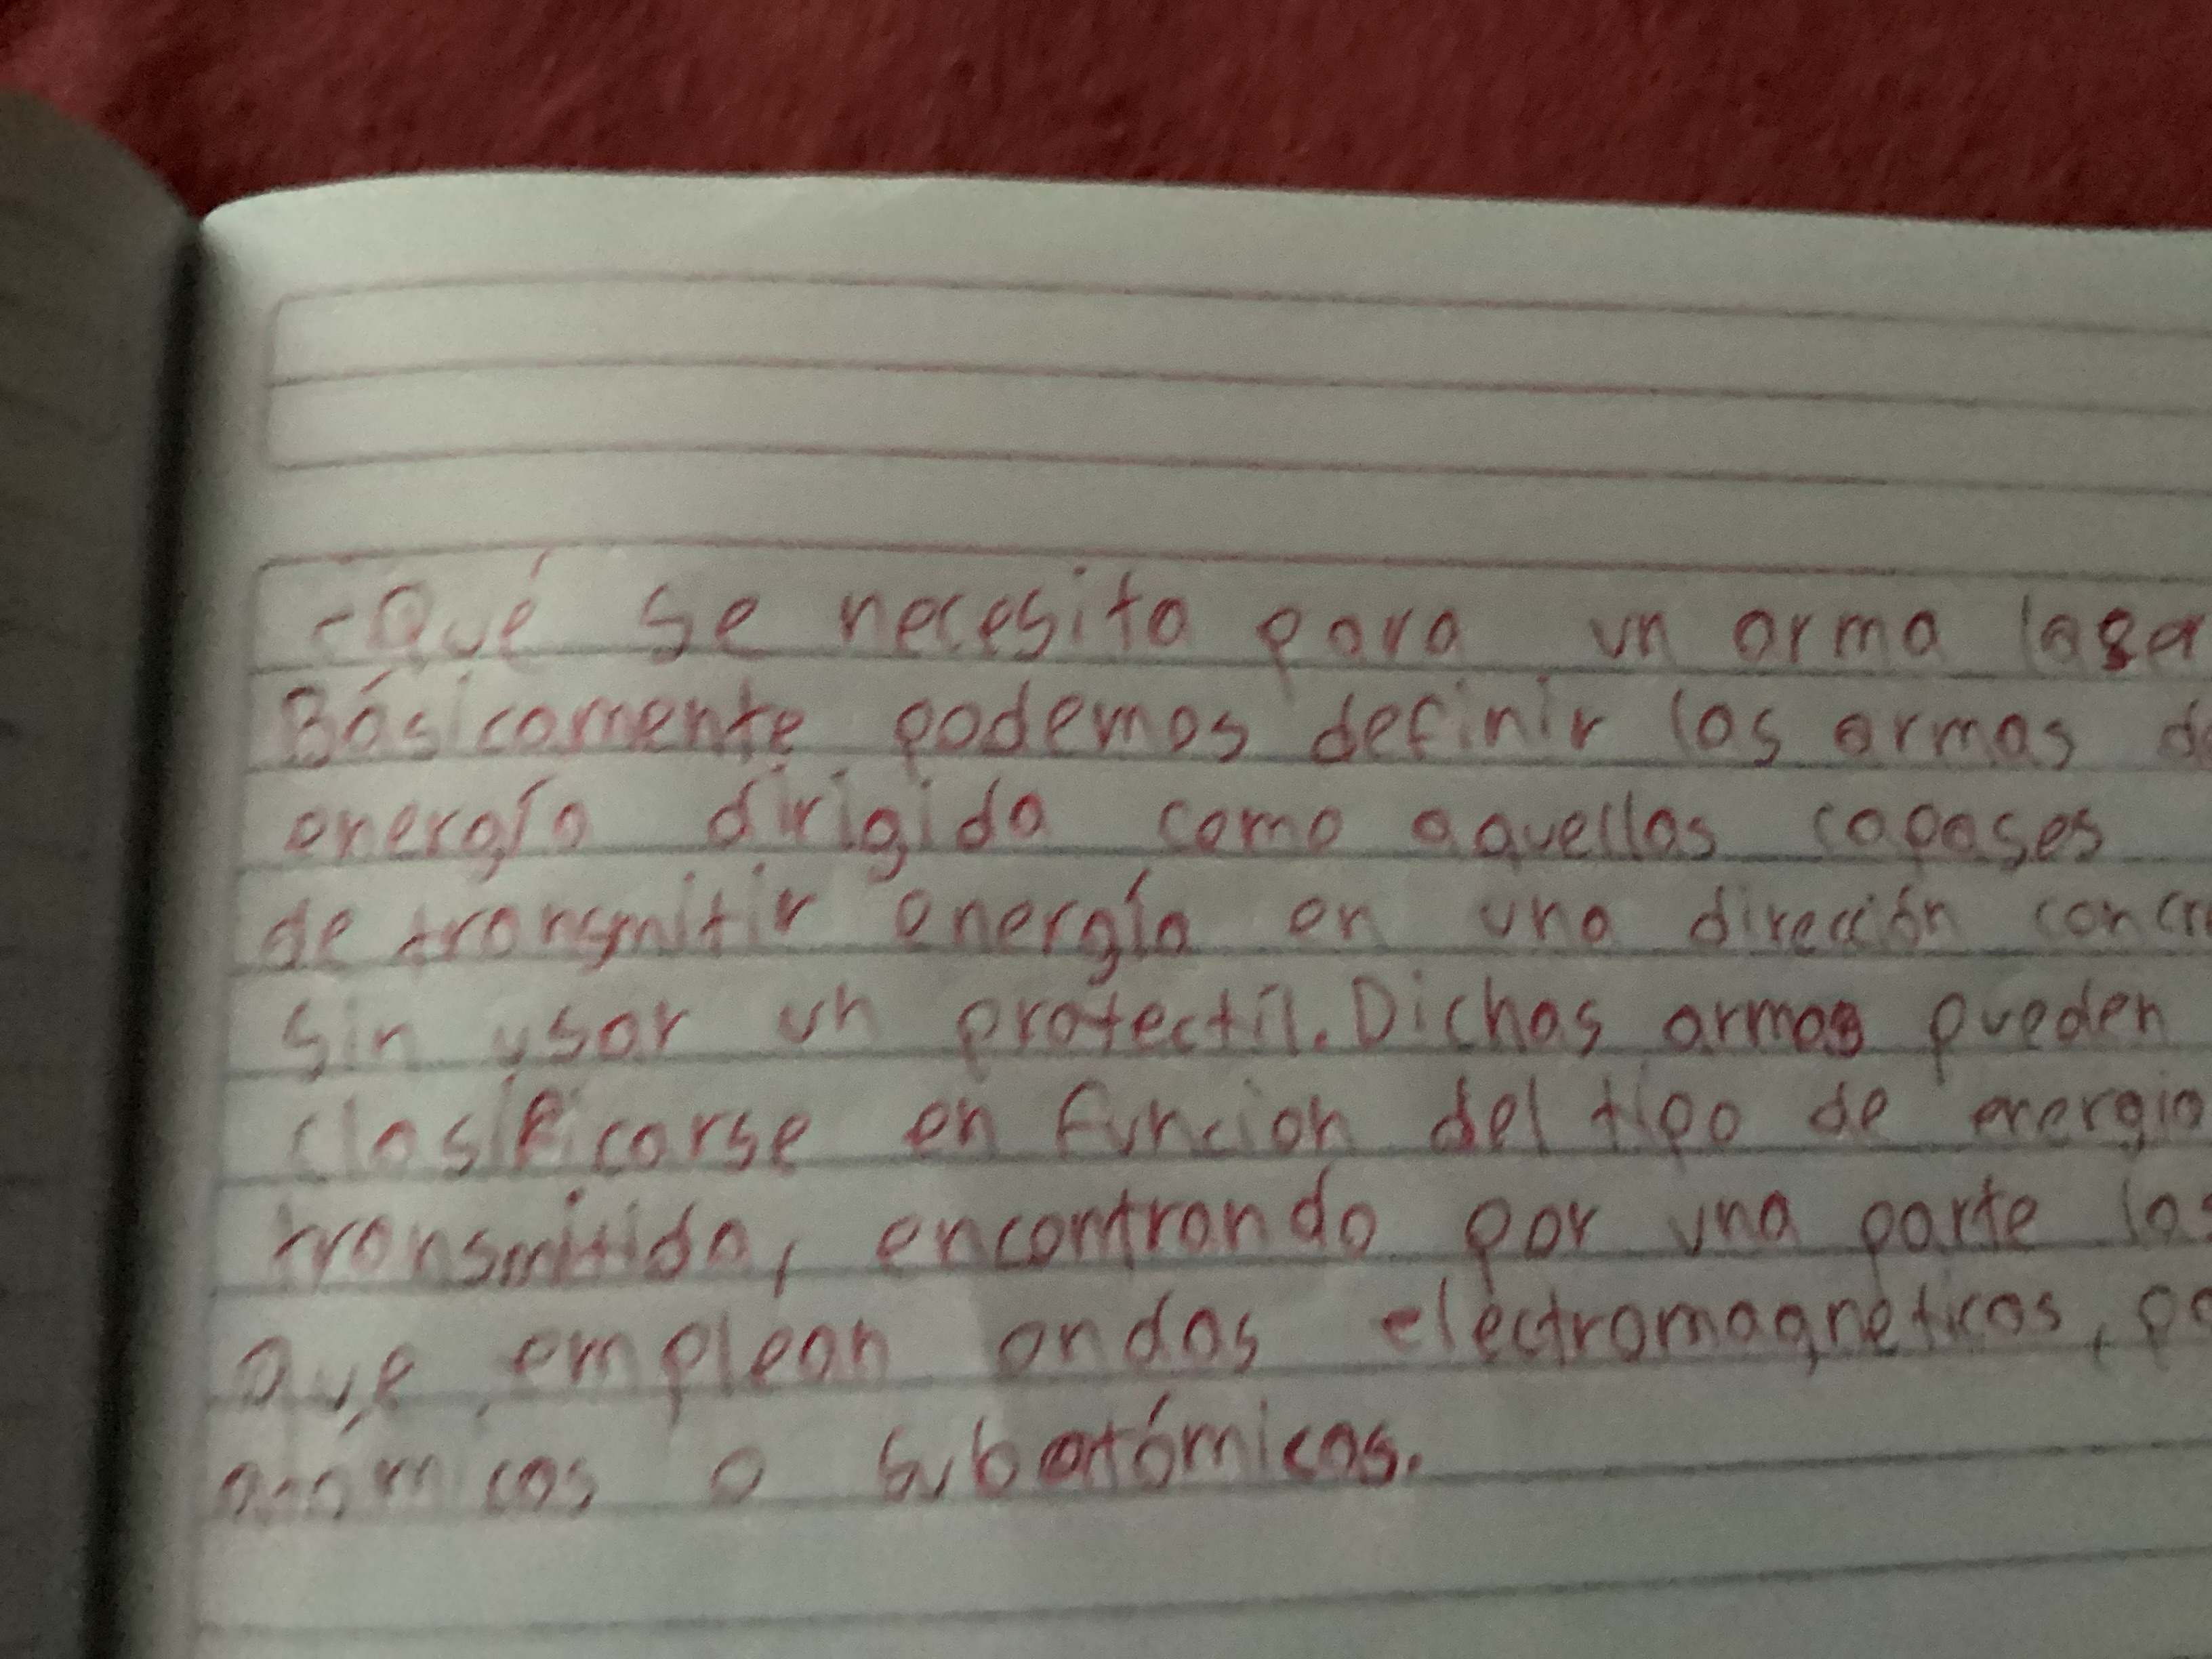 -Qué se necesita para un arma laser
Básicamente podemos definir las armas de
energía dirigida como aquellas capases
de transmitir energía en una dirección concr
sin usar un protectil. Dichas armas pueden
clasificarse en funcion del tipo de energia
transmitida, encontrando por una parte las
que emplean ondas electromagnéticas, pa
atómicas o subatómicas.